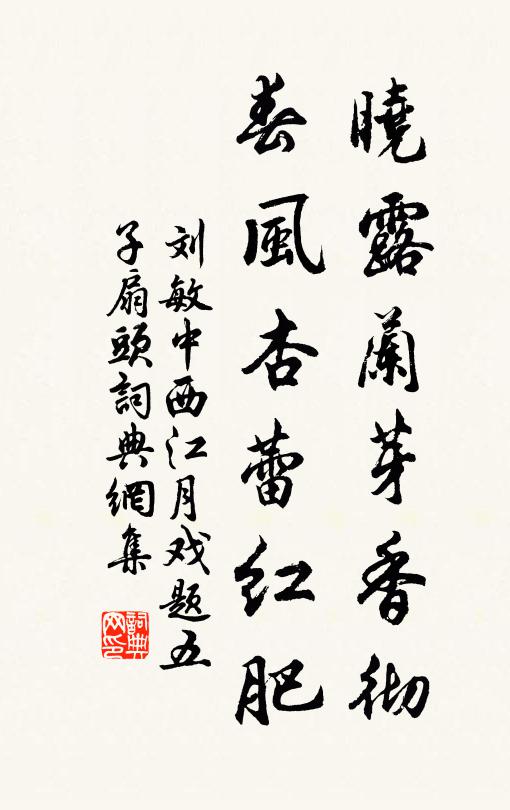 曉露蘭芽香彻
春風杏蕾红肥
刘敏中西江月戏题五
子扇頭詞典網集
詞典
网印